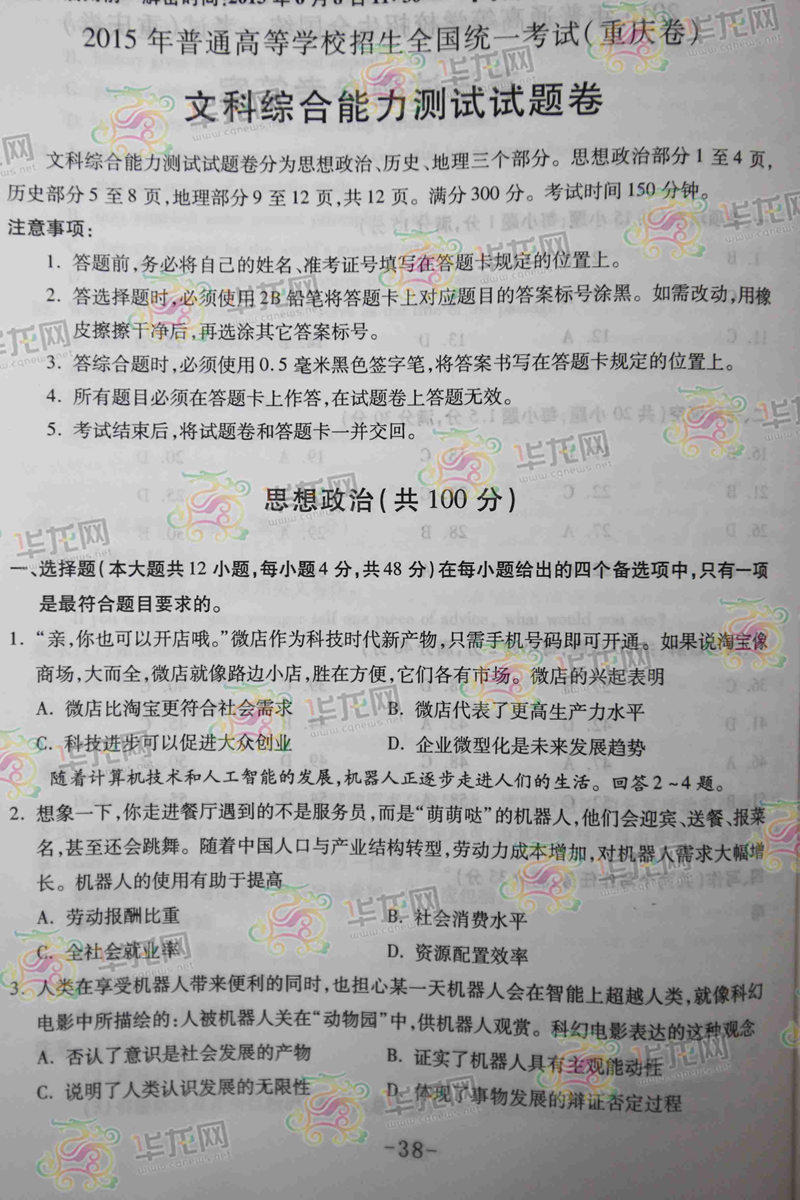 2015年普通高等学校招生全国统一考试(重庆卷)
文科综合能力测试试题卷
文科综合能力测试试题卷分为思想政治、历史、地理三个部分。思想政治部分1至4页,
历史部分5至8页,地理部分9至12页,共12页。满分300分。考试时间150分钟。
注意事项:
1. 答题前,务必将自己的姓名、准考证号填写在答题卡规定的位置上。
2. 答选择题时,必须使用2B铅笔将答题卡上对应题目的答案标号涂黑。如需改动,用橡
皮擦擦干净后,再选涂其它答案标号。
3. 答综合题时,必须使用0.5毫米黑色签字笔,将答案书写在答题卡规定的位置上。
4. 所有题目必须在答题卡上作答,在试题卷上答题无效。
5. 考试结束后,将试题卷和答题卡一并交回。
思想政治(共100分)
一、选择题(本大题共12小题,每小题4分,共48分)在每小题给出的四个备选项中,只有一项
是最符合题目要求的。
1. “亲,你也可以开店哦。”微店作为科技时代新产物,只需手机号码即可开通。如果说淘宝像
商场,大而全,微店就像路边小店,胜在方便,它们各有市场。微店的兴起表明
A. 微店比淘宝更符合社会需求 B. 微店代表了更高生产力水平
C. 科技进步可以促进大众创业 D. 企业微型化是未来发展趋势
随着计算机技术和人工智能的发展,机器人正逐步走进人们的生活。回答2~4题。
2. 想象一下,你走进餐厅遇到的不是服务员,而是“萌萌哒”的机器人,他们会迎宾、送餐、报菜
名,甚至还会跳舞。随着中国人口与产业结构转型,劳动力成本增加,对机器人需求大幅增
长。机器人的使用有助于提高
A. 劳动报酬比重 B. 社会消费水平
C. 全社会就业率 D. 资源配置效率
3. 人类在享受机器人带来便利的同时,也担心某一天机器人会在智能上超越人类,就像科幻
电影中所描绘的:人被机器人关在“动物园”中,供机器人观赏。科幻电影表达的这种观念
A. 否认了意识是社会发展的产物 B. 证实了机器人具有主观能动性
C. 说明了人类认识发展的无限性 D. 体现了事物发展的辩证否定过程
-38-
华龙网
www.cqnews.net